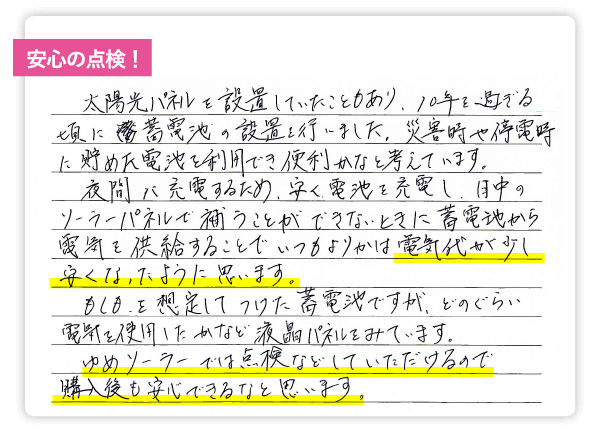 安心の点検！
太陽光パネルを設置していたこともあり、10年を過ぎる
頃に蓄電池の設置を行いました。災害時や停電時
に貯めた電池を利用でき便利かなと考えています。
夜間に充電するため、安く電池を充電し、日中の
ソーラーパネルで補うことができないときに蓄電池から
電気を供給することでいつもよりかは電気代が少し
安くなったように思います。
もしもを想定してつけた蓄電池ですが、どのぐらい
電気を使用したかなど液晶パネルをみています。
ゆめソーラーでは点検などしていただけるので
購入後も安心できるなと思います。